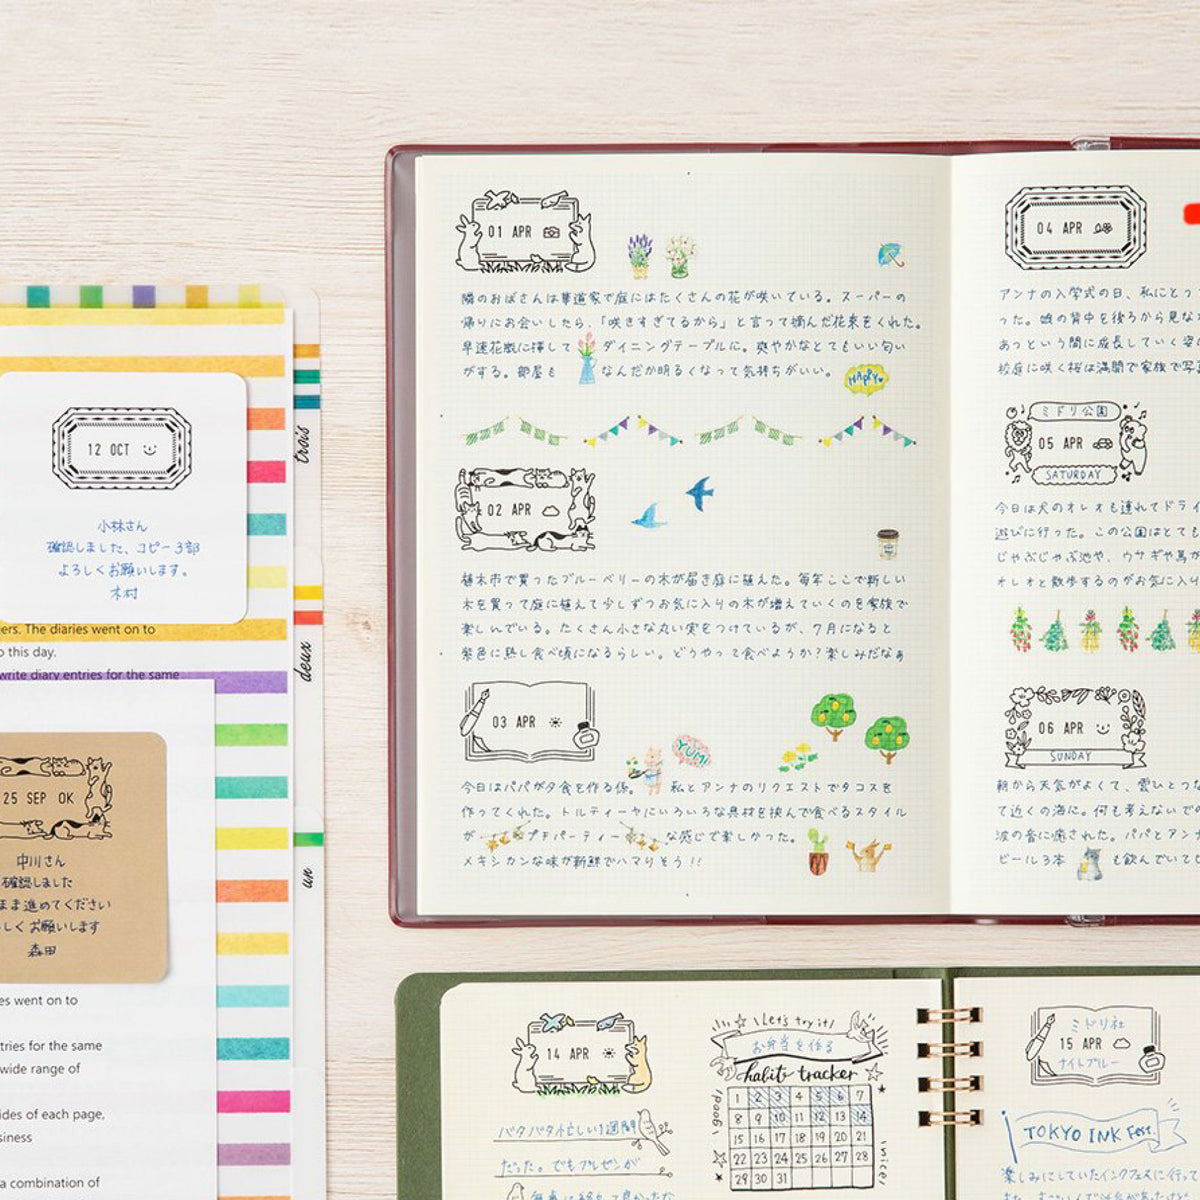 01 APR
隣のおばさんは華道家で庭にはたくさんの花が咲いている。スーパーの
帰りにお会いしたら、「咲きすぎてるから」と言って摘んだ花束をくれた。
早速花瓶に挿して ダイニングテーブルに。爽やかなとてもいい匂い
がする。部屋も なんだか明るくなって気持ちがいい。
HAPPY
02 APR
植木市で買ったブルーベリーの木が届き庭に植えた。毎年ここで新しい
木を買って庭に植えて少しずつお気に入りの木が増えていくのを家族で
楽しんでいる。たくさん小さな丸い実をつけているが、7月になると
紫色に熟し食べ頃になるらしい。どうやって食べようか?楽しみだなぁ
03 APR
YUM!
今日はパパが夕食を作る係。 私とアンナのリクエストでタコスを
作ってくれた。トルティーヤにいろいろな具材を挟んで食べるスタイル
が プチパーティー な感じで楽しかった。
メキシカンな味が新鮮でハマりそう!!
04 APR
アンナの入学式の日、私にとっ
った。娘の背中を後ろから見な
あっという間に成長していく姿
校庭に咲く桜は満開で家族で写
ミドリ公園
05 APR
SATURDAY
今日は犬のオレオも連れてドライ
遊びに行った。この公園はとても
じゃぶじゃぶ池や、ウサギや馬
オレオと散歩するのがお気に入り
06 APR
SUNDAY
朝から天気がよくて、雲ひとつな
て近くの海に。何も考えないで
波の音に癒された。パパとアン
ビール3本 も飲んでいて
trois
deux
un
12 OCT
小林さん
確認しました、コピー3部
よろしくお願いします。
木村
ers. The diaries went on to
o this day.
write diary entries for the same
25 SEP OK
中川さん
確認しました
まま進めてください
しくお願いします
森田
es went on to
tries for the same
wide range of
ides of each page,
siness
a combination of
14 APR
バタバタ忙しい1週間
だった。でもプレゼンが
Let's try it!
お弁当を作る
habit tracker
good!
nice!
1 2 3 4 5 6 7
8 9 10 11 12 13 14
15 16 17 18 19 20 21
22 23 24 25 26 27 28
29 30 31
ミドリ社
15 APR
ナイトブルー
TOKYO INK Fest.
楽しみにしていたインクフェスに行っ